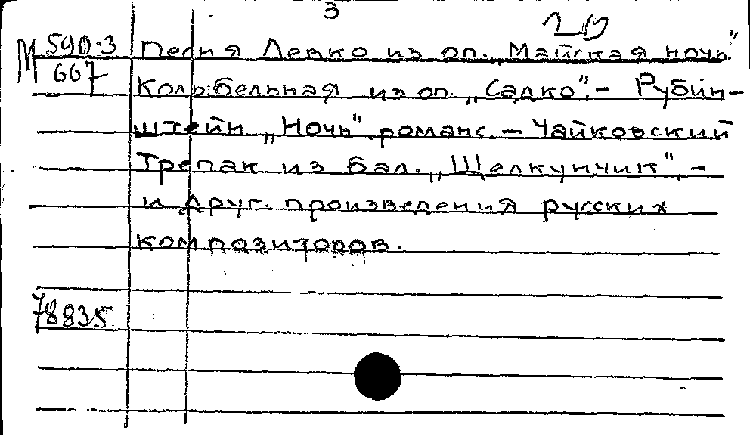 3
20
М 590:3
667
Песня Левко из оп. „Майская ночь"
Колыбельная из оп. „Садко".– Рубин-
штейн „Ночь" романс. – Чайковский
Трепак из бал. „Щелкунчик". –
и друг. произведения русских
композиторов.
78835